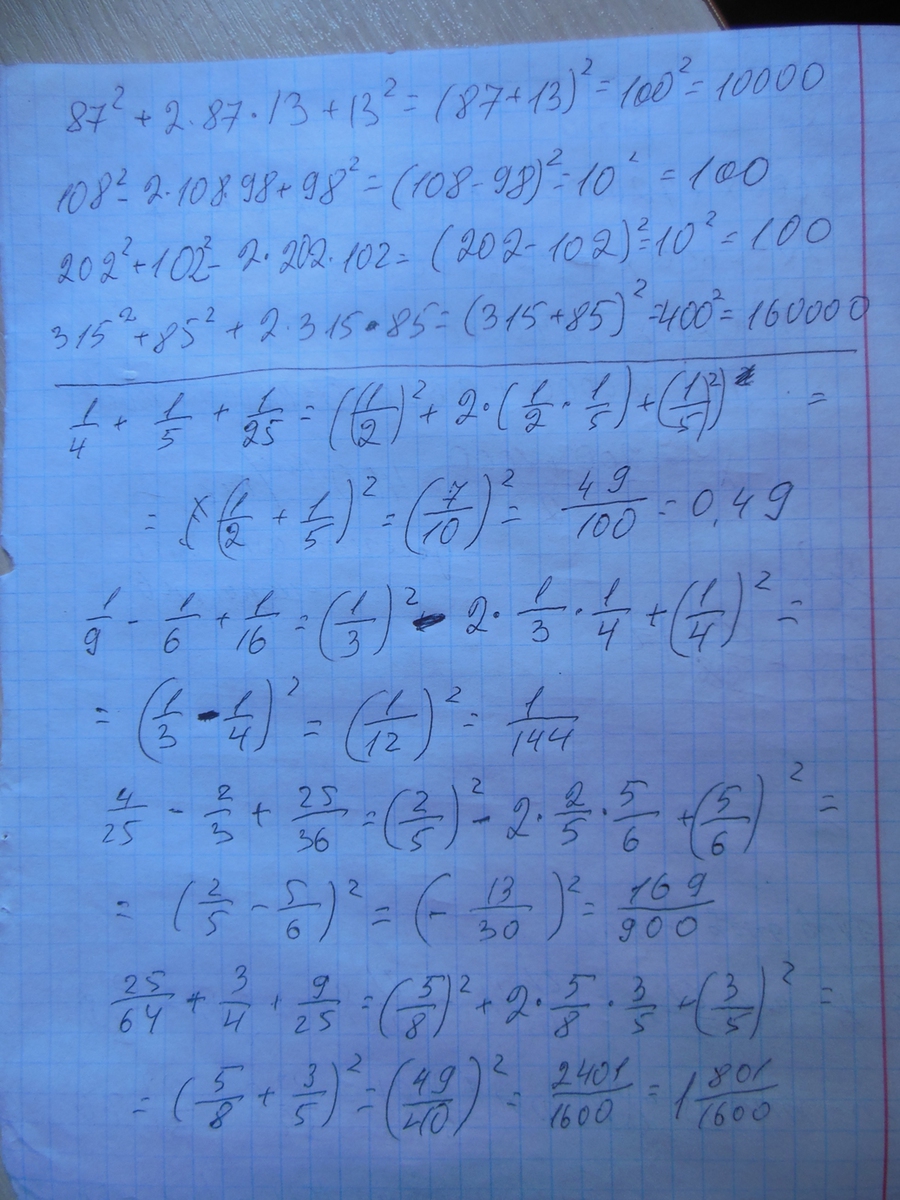 87² + 2·87·13 + 13² = (87+13)² = 100² = 10000
108² - 2·108·98 + 98² = (108-98)² = 10² = 100
202² + 102² - 2·202·102 = (202-102)² = 10² = 100
315² + 85² + 2·315·85 = (315+85)² = 400² = 160000
1/4 + 1/5 + 1/25 = (1/2)² + 2·(1/2·1/5) + (1/5)² =
= (1/2 + 1/5)² = (7/10)² = 49/100 = 0,49
1/9 - 1/6 + 1/16 = (1/3)² - 2·1/3·1/4 + (1/4)² =
= (1/3 - 1/4)² = (1/12)² = 1/144
4/25 - 2/3 + 25/36 = (2/5)² - 2·2/5·5/6 + (5/6)² =
= (2/5 - 5/6)² = (- 13/30)² = 169/900
25/64 + 3/4 + 9/25 = (5/8)² + 2·5/8·3/5 + (3/5)² =
= (5/8 + 3/5)² = (49/40)² = 2401/1600 = 1 801/1600